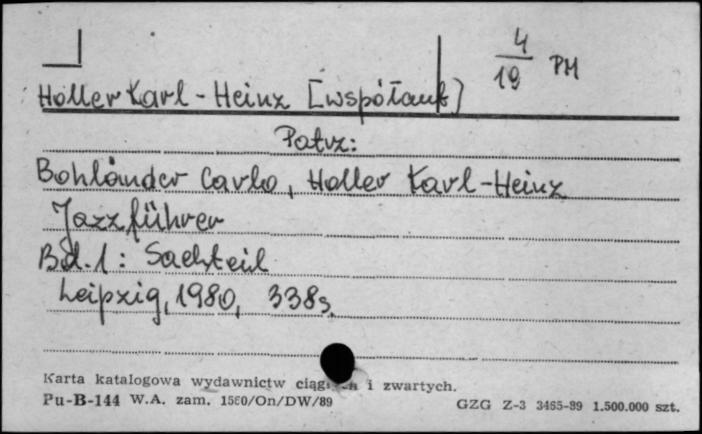 4
19 PM
Holler Karl-Heinz [współaut]
Patrz:
Bohländer Carlo, Holler Karl-Heinz
Jazzführer
Bd. 1: Sachteil
Leipzig, 1980, 338s,
Karta katalogowa wydawnictw i zwartych.
Pu-B-144 W.A. zam. 1560/On/DW/89
GZG Z-3 3465-89 1.500.000 szt.